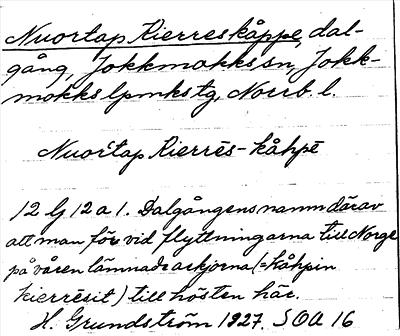 Nuortap Kierreskåppe, dal-
gång, Jokkmokks sn, Jokk-
mokks lpmkstg, Norrb. l.
Nuortap Kierrēs-kåhpē
12 lj 12 a 1. Dalgångens namn därav
att man för vid flyttningarna till Norge
på våren lämnade ackjorna (=kåhpin
kierrēsit) till hösten här.
H. Grundström 1927. SOA 16